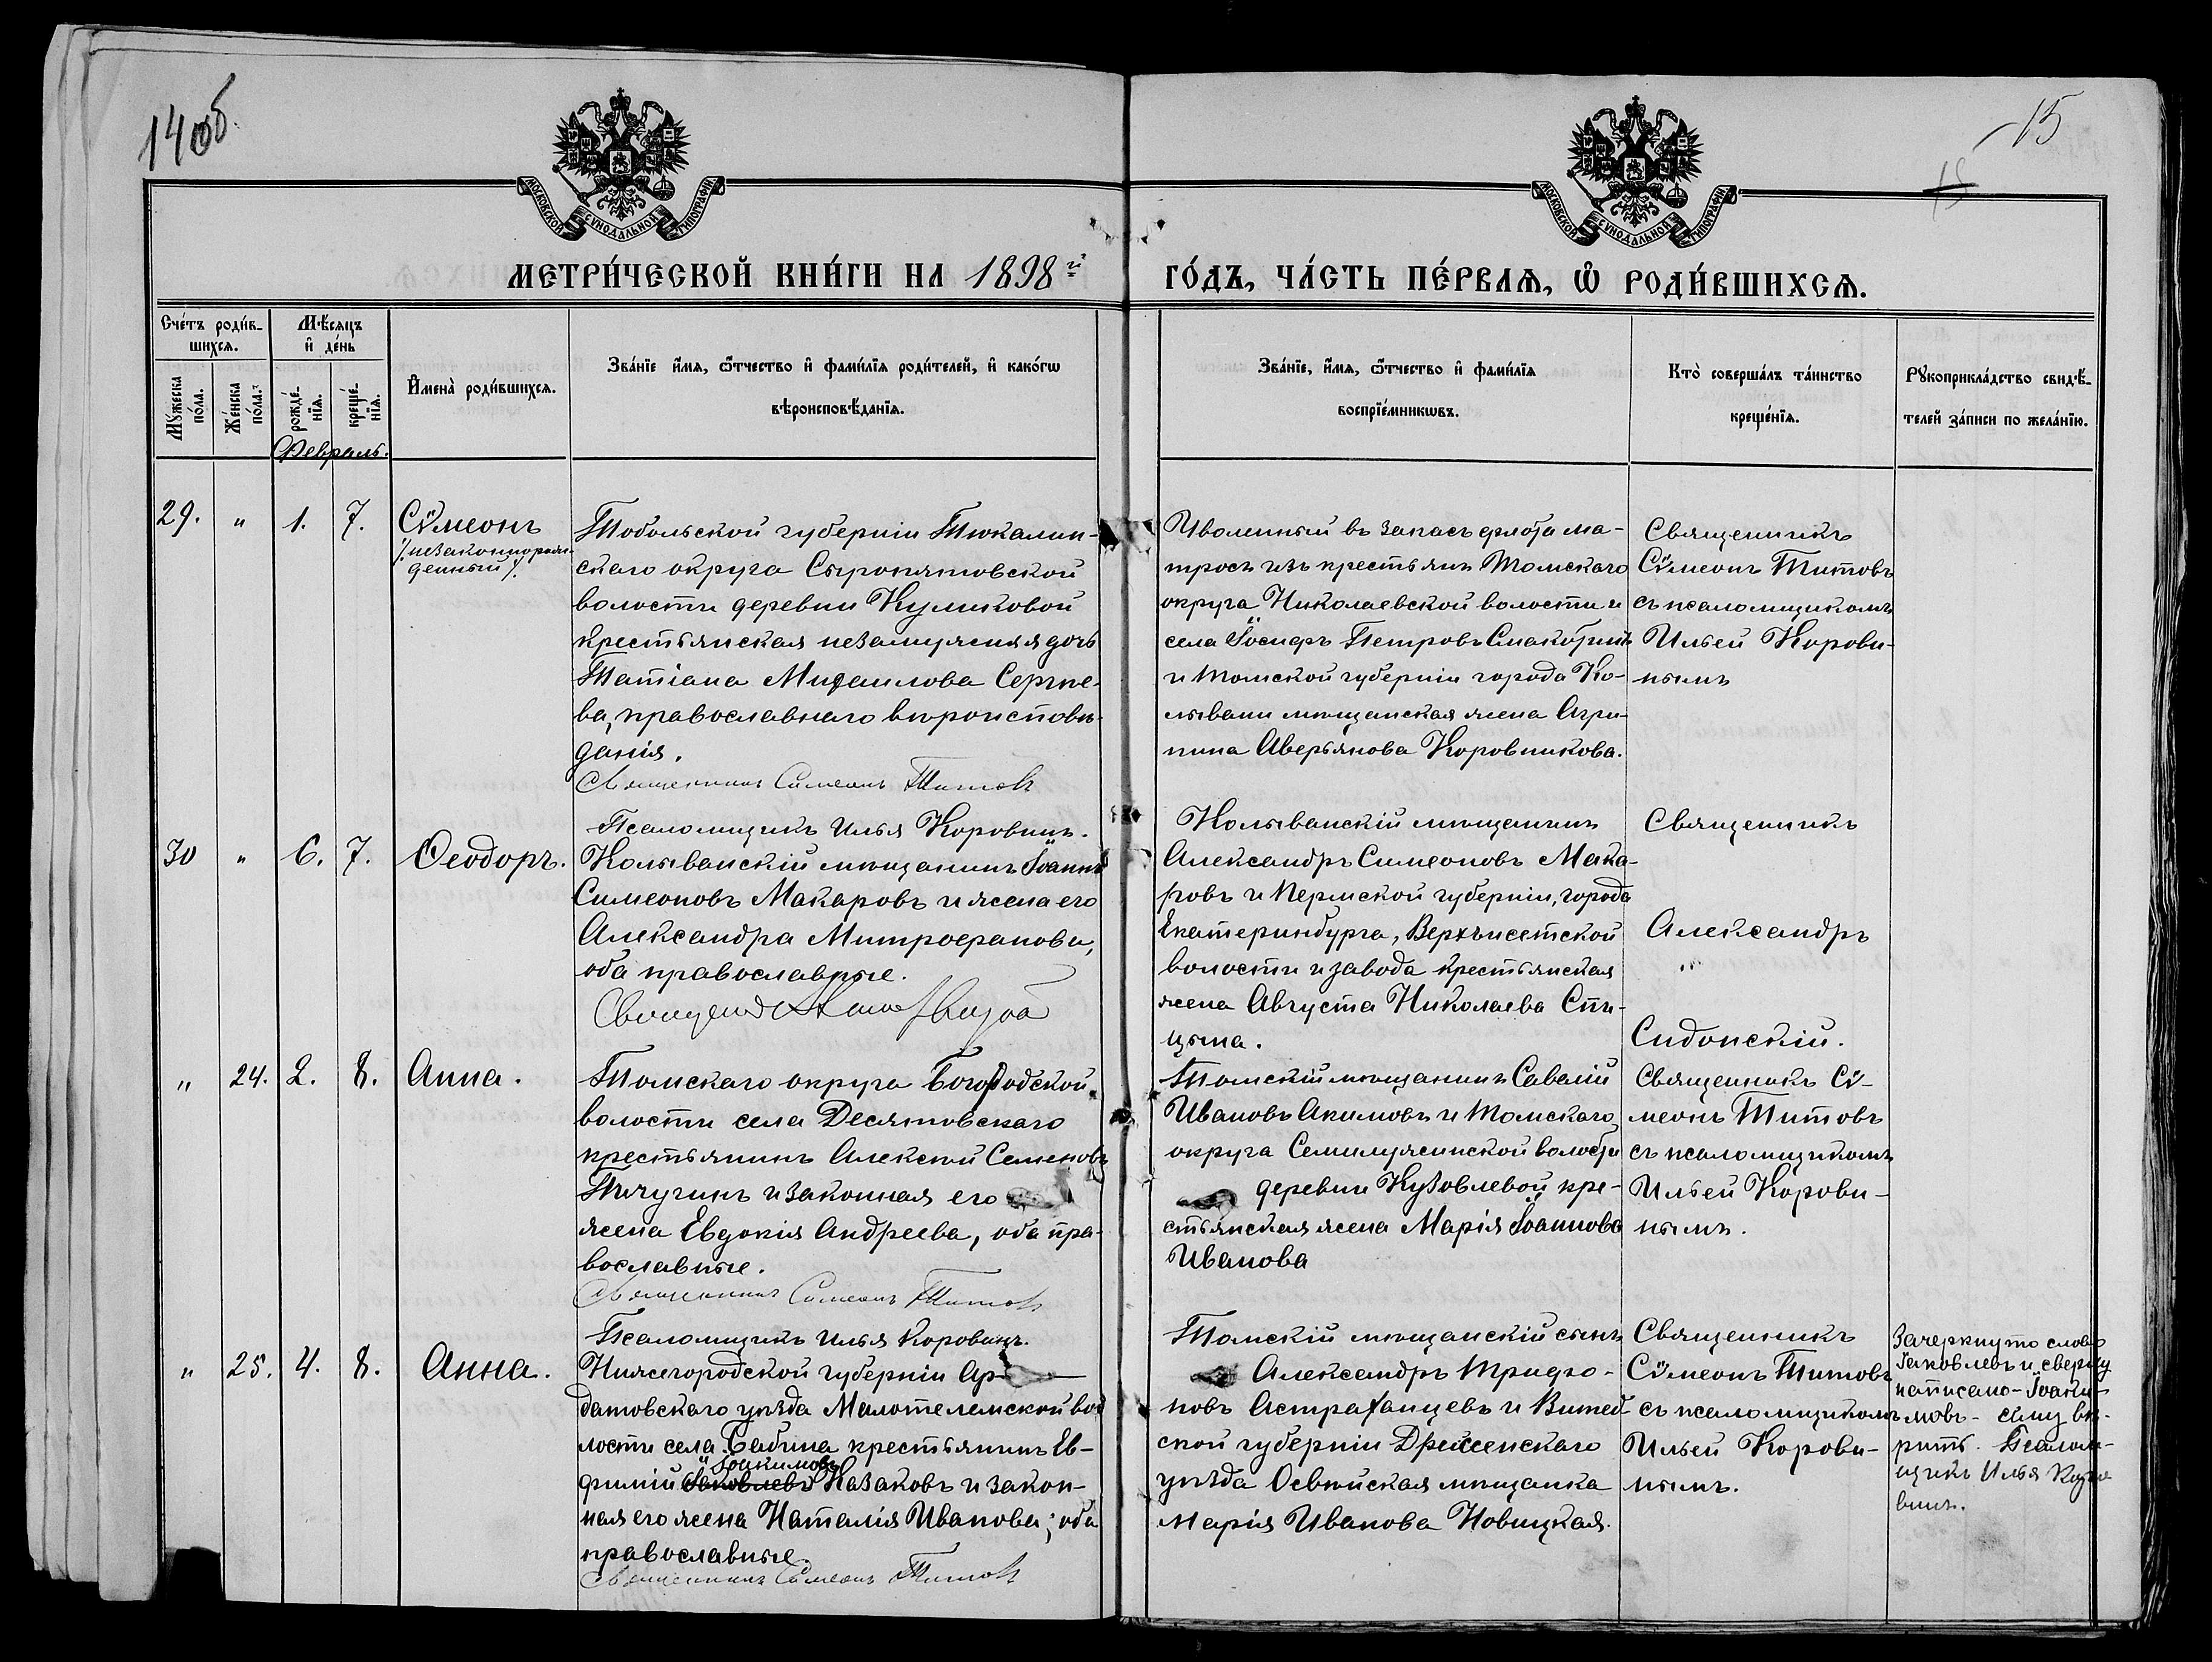 14об.
15
15
МОСКОВСКОЙ СѴНОДАЛЬНОЙ ТИПОГРАФІИ
МОСКОВСКОЙ СѴНОДАЛЬНОЙ ТИПОГРАФІИ
МЕТРИ́ЧЕСКОЙ КНИ́ГИ НА 1898й
ГО́ДЪ, ЧА́СТЬ ПЕ́РВАѦ, Ѡ҆ РОДИ́ВШИХСѦ.
Сче́тъ роди́в-
шихся.
Мꙋ́жеска
по́ла.
Же́нска
по́ла.
Мѣ́сяцъ
и҆ де́нь
рожде́-
нїя.
креще́-
нїя.
Февраль.
И҆мена̀ роди́вшихся.
Зва́нїе и҆́мя, ѻ҆́тчество и҆ фами́лїя роди́телей, и҆ како́гѡ
вѣроисповѣ́данїя.
Зва́нїе, и҆́мя, ѻ҆́тчество и҆ фами́лїя
воспрїе́мникѡвъ.
Кто̀ соверша́лъ та́инство
креще́нїя.
Рꙋкоприкла́дство свидѣ́-
телей за́писи по жела́нїю.
29. " 1. 7. Сѵмеонъ
/незаконнорож-
денный/.
Тобольской губерніи Тюкалин-
скаго округа Сыропятовской
волости деревни Куликовой
крестьянская незамужняя дочь
Татіана Михаилова Сергѣе-
ва, православнаго вѣроисповѣ-
данія.
Священникъ Симеонъ Титовъ
Псаломщикъ Илья Коровинъ.
Уволенный въ запасъ флота ма-
тросъ изъ крестьянъ Томскаго
округа Николаевской волости и
села Іосифъ Петровъ
и Томской губерніи города Ко-
лывани мѣщанская жена Агри-
пина Аверьянова Коровникова.
Священникъ
Сѵмеонъ Титовъ
съ псаломщикомъ
Ильей Корови-
нымъ
30 " 6. 7. Ѳеодоръ.
Колыванскій мѣщанинъ Іоаннъ
Симеоновъ Макаровъ и жена его
Александра Митрофанова,
оба православные.
Колыванскій мѣщанинъ
Александръ Симеоновъ Мака-
ровъ и Пермской губерніи, города
Екатеринбурга, Верхъисетской
волости и завода крестьянская
жена Августа Николаева Спи-
цына.
Священникъ
Александръ
Сидонскій.
" 24. 2. 8. Анна.
Томскаго округа Богородской
волости села Десятовскаго
крестьянинъ Алексѣй Семеновъ
Пичугинъ и законная его
жена Евдокія Андреева, оба пра-
вославные.
Священникъ Симеонъ Титовъ
Псаломщикъ Илья Коровинъ.
Томскій мѣщанинъ Савалій
Ивановъ Акимовъ и Томскаго
округа Семилужинской волости
деревни Кузовлевой кре-
стьянская жена Марія Іоаннова
Иванова
Священникъ Сѵ-
меонъ Титовъ
съ псаломщикомъ
Ильей Корови-
нымъ.
" 25. 4. 8. Анна.
Нижегородской губерніи Ар-
датовскаго уѣзда Малотелемской во-
лости села Бабина крестьянинъ Ев-
Іоакимовъ
фимій Іаковлевъ Казаковъ и закон-
ная его жена Наталія Иванова; оба
православные.
Священникъ Симеонъ Титовъ
Томскій мѣщанскій сынъ
Александръ
Астраханцевъ и Витеб-
ской губерніи Дриссенскаго
уѣзда Освѣйская мѣщанка
Марія Иванова Новицкая.
Священникъ
Сѵмеонъ Титовъ
съ псаломщикомъ
Ильей Корови-
нымъ.
Зачеркнуто слово
Іаковлевъ и сверху
написано - Іоаки-
мовъ - сему вѣ-
рить. Псалом-
щикъ Илья Коро-
винъ.